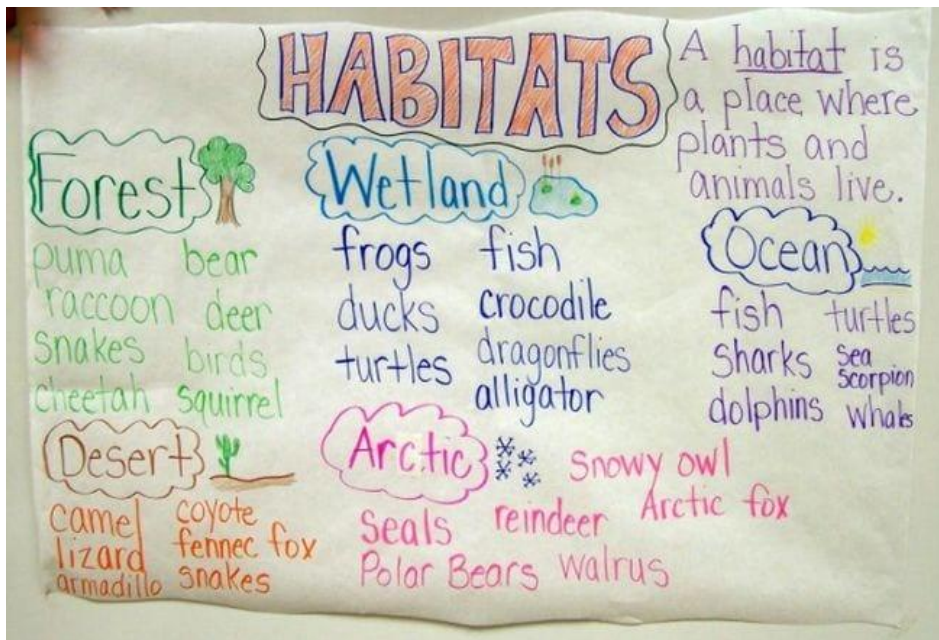 HABITATS
A habitat is
a place where
plants and
animals live.
Forest
puma bear
raccoon deer
snakes birds
cheetah squirrel
Wetland
frogs fish
ducks crocodile
turtles dragonflies
alligator
Ocean
fish turtles
sharks sea
scorpion
dolphins whales
Desert
camel coyote
lizard fennec fox
armadillo snakes
Arctic
snowy owl
seals reindeer Arctic fox
Polar Bears walrus